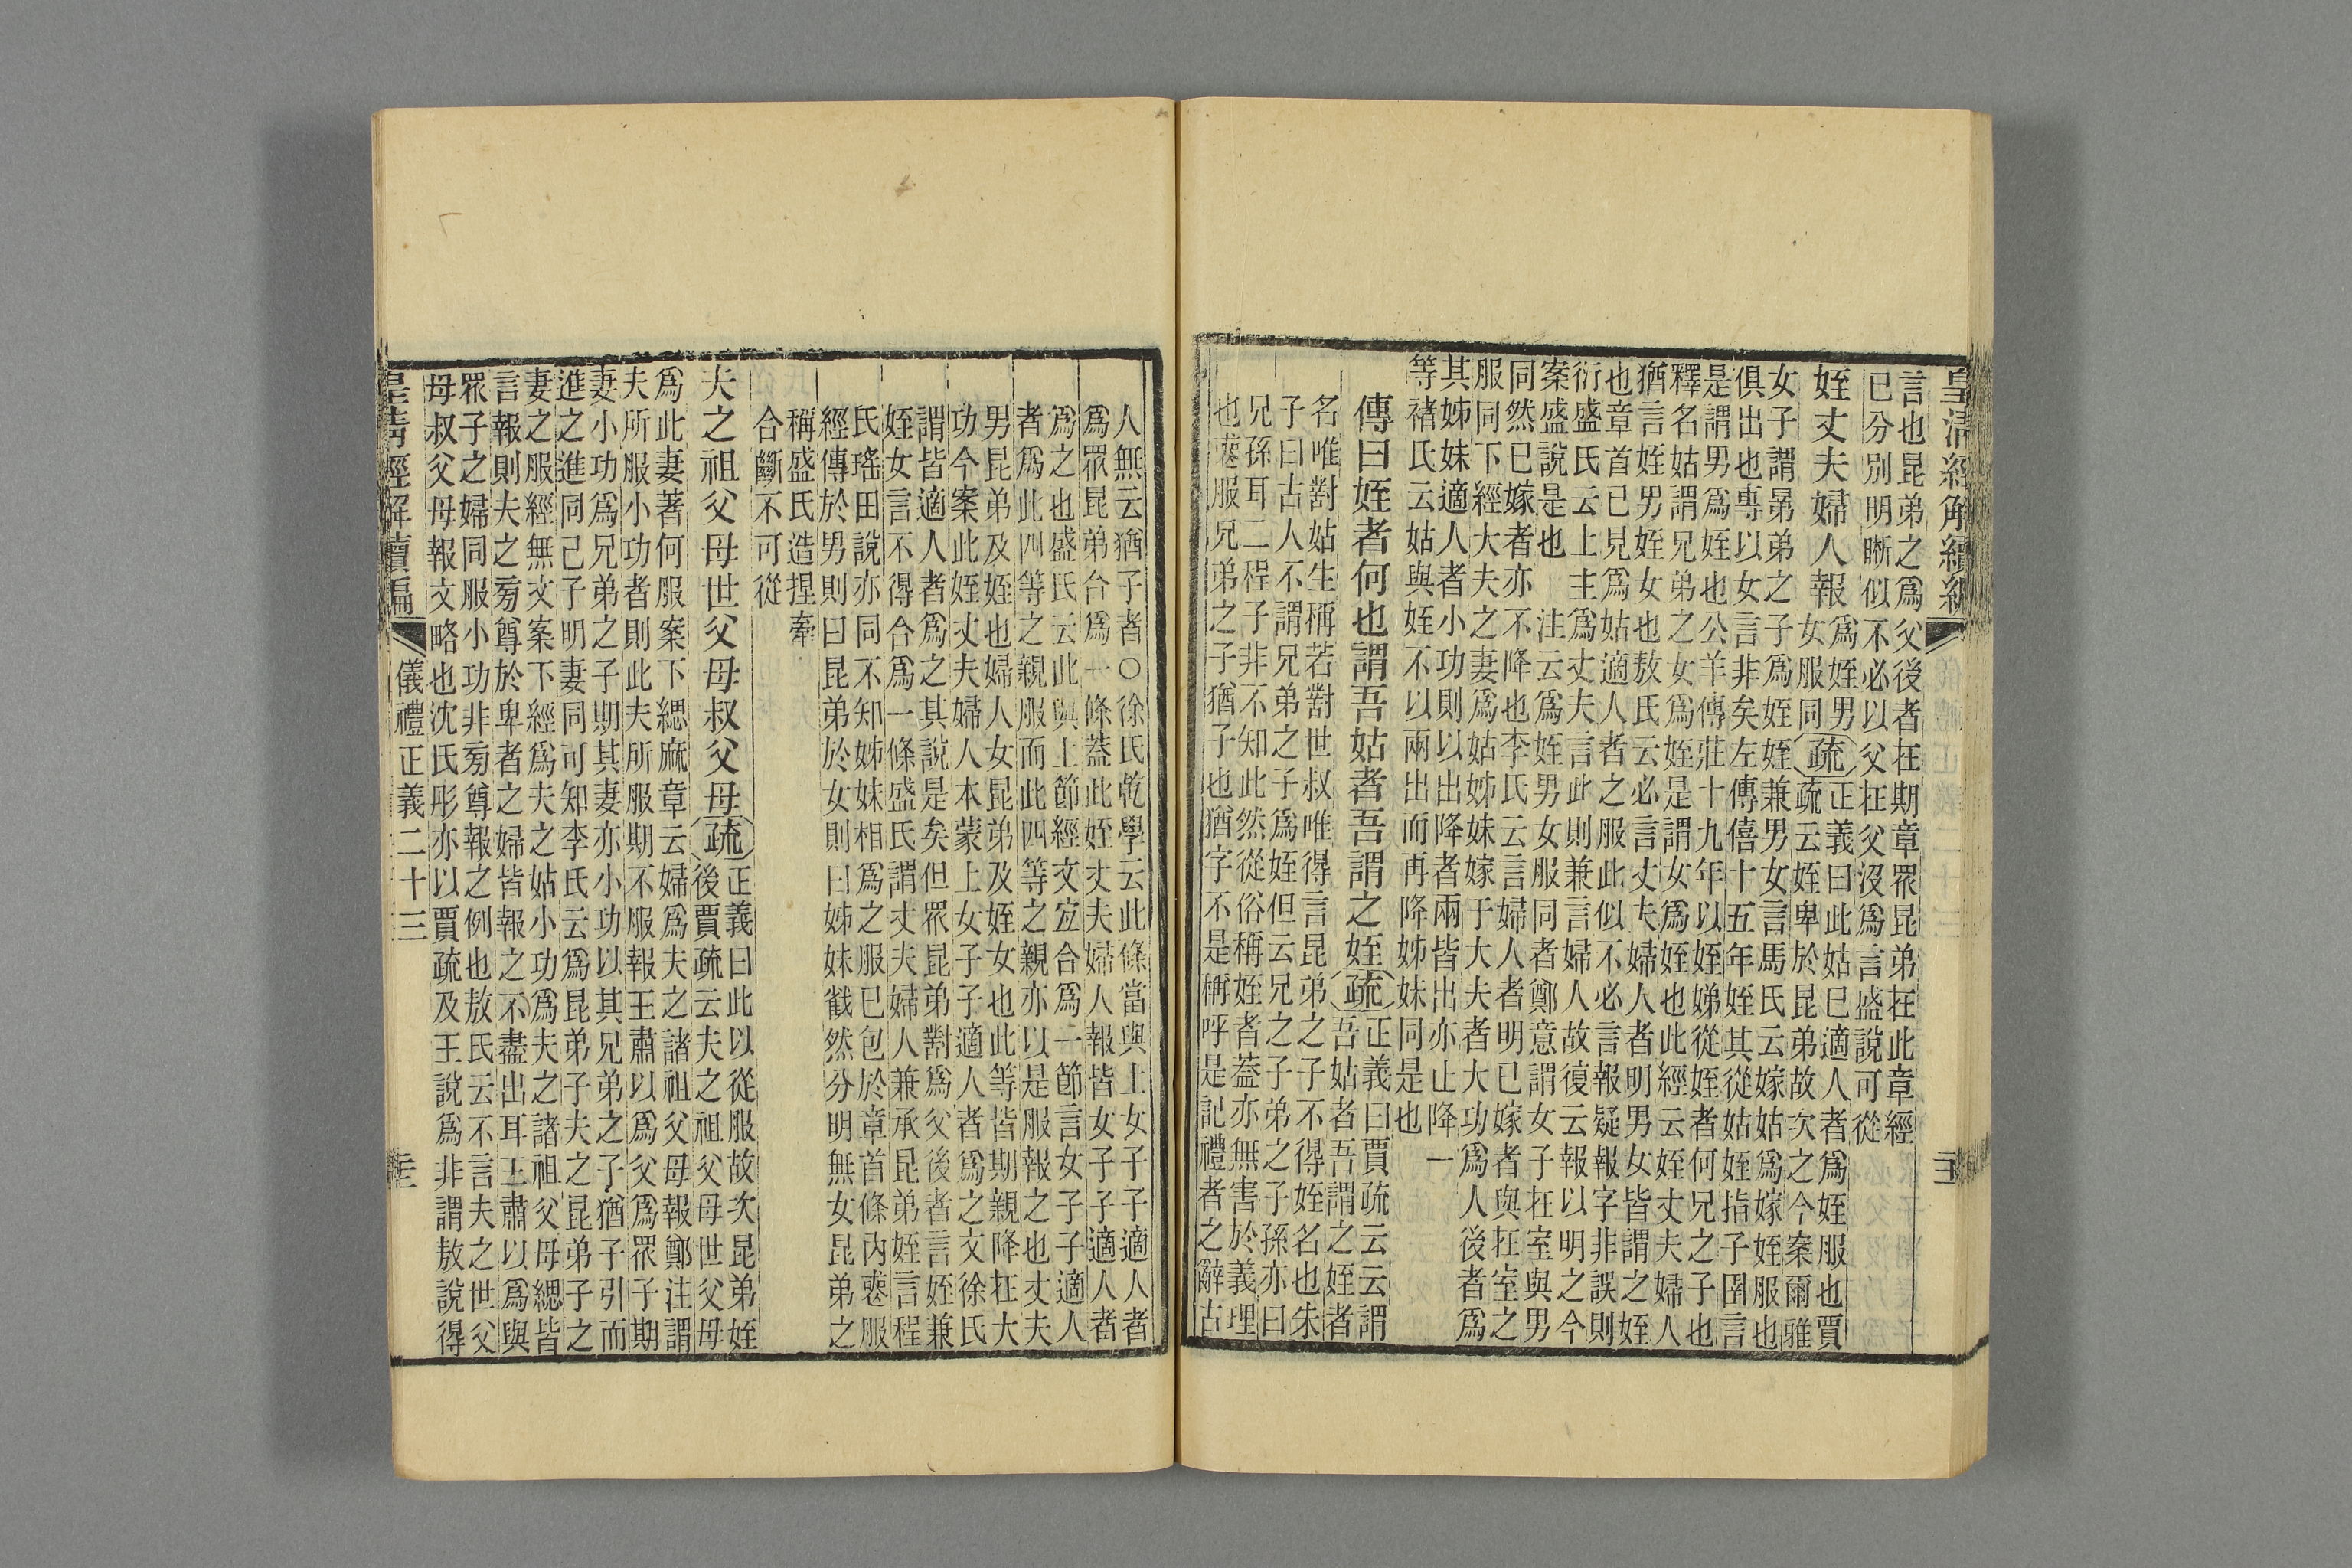 皇清經解續編
言也昆弟之爲父後者在期章眾昆弟在此章經
已分別明晰似不必以父在父沒爲言盛說可從
姪丈夫婦人報
爲姪男
女服同
疏
正義曰此姑已適人者爲姪服也賈
疏云姪卑於昆弟故次之今案爾雅
女子謂晜弟之子爲姪姪兼男女言馬氏云嫁姑爲嫁姪服也
俱出也專以女言非矣左傳僖十五年姪其從姑姪指子圉言
是謂男爲姪也公羊傳莊十九年以姪娣從姪者何兄之子也
釋名姑謂兄弟之女爲姪是謂女爲姪也此經云姪丈夫婦人
猶言姪男姪女也敖氏云必言丈夫婦人者明男女皆謂之姪
也章首已見爲姑適人者之服此似不必言報疑報字非誤則
衍盛氏云上主爲丈夫言此則兼言婦人故復云報以明之今
案盛說是也 注云爲姪男女服同者鄭意謂女子在室與男
同然已嫁者亦不降也李氏云言婦人者明已嫁者與在室之
服同下經大夫之妻爲姑姊妹嫁于大夫者大功爲人後者爲
其姊妹適人者小功則以出降者兩皆出亦止降一
等禇氏云姑與姪不以兩出而再降姊妹同是也
傳曰姪者何也謂吾姑者吾謂之姪
疏
正義曰賈疏云云謂
吾姑者吾謂之姪者
名唯對姑生稱若對世叔唯得言昆弟之子不得姪名也朱
子曰古人不謂兄弟之子爲姪但云兄之子弟之子孫亦曰
兄孫耳二程子非不知此然從俗稱姪者蓋亦無害於義理
也䘮服兄弟之子猶子也猶字不是稱呼是記禮者之辭古
人無云猶子者○徐氏乾學云此條當與上女子子適人者
爲眾昆弟合爲一條蓋此姪丈夫婦人報皆女子子適人者
爲之也盛氏云此與上節經文宜合爲一節言女子子適人
者爲此四等之親服而此四等之親亦以是服報之也丈夫
男昆弟及姪也婦人女昆弟及姪女也此等皆期親降在大
功今案此姪丈夫婦人本蒙上女子子適人者爲之文徐氏
謂皆適人者爲之其說是矣但眾昆弟對爲父後者言姪兼
姪女言不得合爲一條盛氏謂丈夫婦人兼承昆弟姪言程
氏瑤田說亦同不知姊妹相爲之服已包於章首條內䘮服
經傳於男則曰昆弟於女則曰姊妹截然分明無女昆弟之
稱盛氏造捏牽
合斷不可從
夫之祖父母世父母叔父母
疏
正義曰此以從服故次昆弟姪
後賈疏云夫之祖父母世父母
爲此妻著何服案下緦麻章云婦爲夫之諸祖父母報鄭注謂
夫所服小功者則此夫所服期不服報王肅以爲父爲眾子期
妻小功爲兄弟之子期其妻亦小功以其兄弟之子猶子引而
進之進同己子明妻同可知李氏云爲昆弟子夫之昆弟子之
妻之服經無文案下經爲夫之姑小功爲夫之諸祖父母緦皆
言報則夫之旁尊於卑者之婦皆報之不盡出耳王肅以爲與
眾子之婦同服小功非旁尊報之例也敖氏云不言夫之世父
母叔父母報文略也沈氏彤亦以賈疏及王說爲非謂敖說得
皇清經解續編
儀禮正義二十三